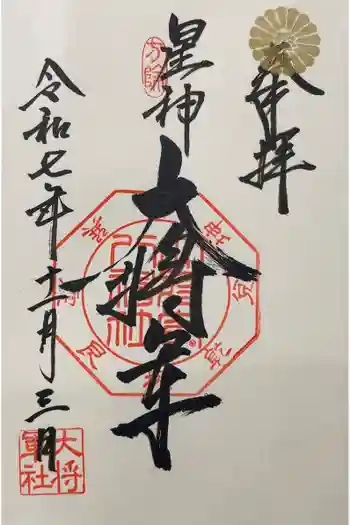 奉拝
星神
方除
大将軍
令和七年十一月三日
大将
軍社